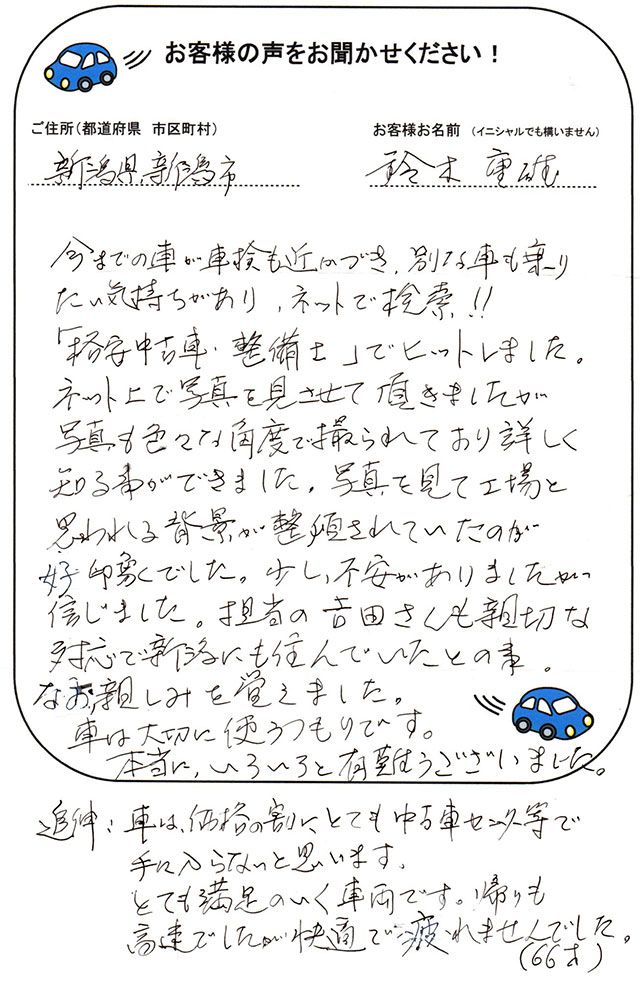 お客様の声をお聞かせください！
ご住所（都道府県 市区町村）
お客様お名前 （イニシャルでも構いません）
新潟県新潟市
鈴木 重雄
今までの車が車検も近かづき、別な車も乗り
たい気持ちがあり、ネットで検索!!
「格安中古車・整備士」でヒットしました。
ネット上で写真を見させて頂きましたが
写真も色々な角度で撮られており詳しく
知る事ができました。写真を見て工場と
思われる背景が整頓されていたのが
好印象でした。少し、不安がありましたが
信じました。担当の吉田さんも親切な
対応で新潟にも住んでいたとの事。
なお、親しみを覚えました。
車は大切に使うつもりです。
本当に、いろいろと有難うございました。
追伸：車は、価格の割に、とても中古車センター等で
手に入らないと思います。
とても満足のいく車両です。帰りも
高速でしたが快適で疲れませんでした。
（66才）